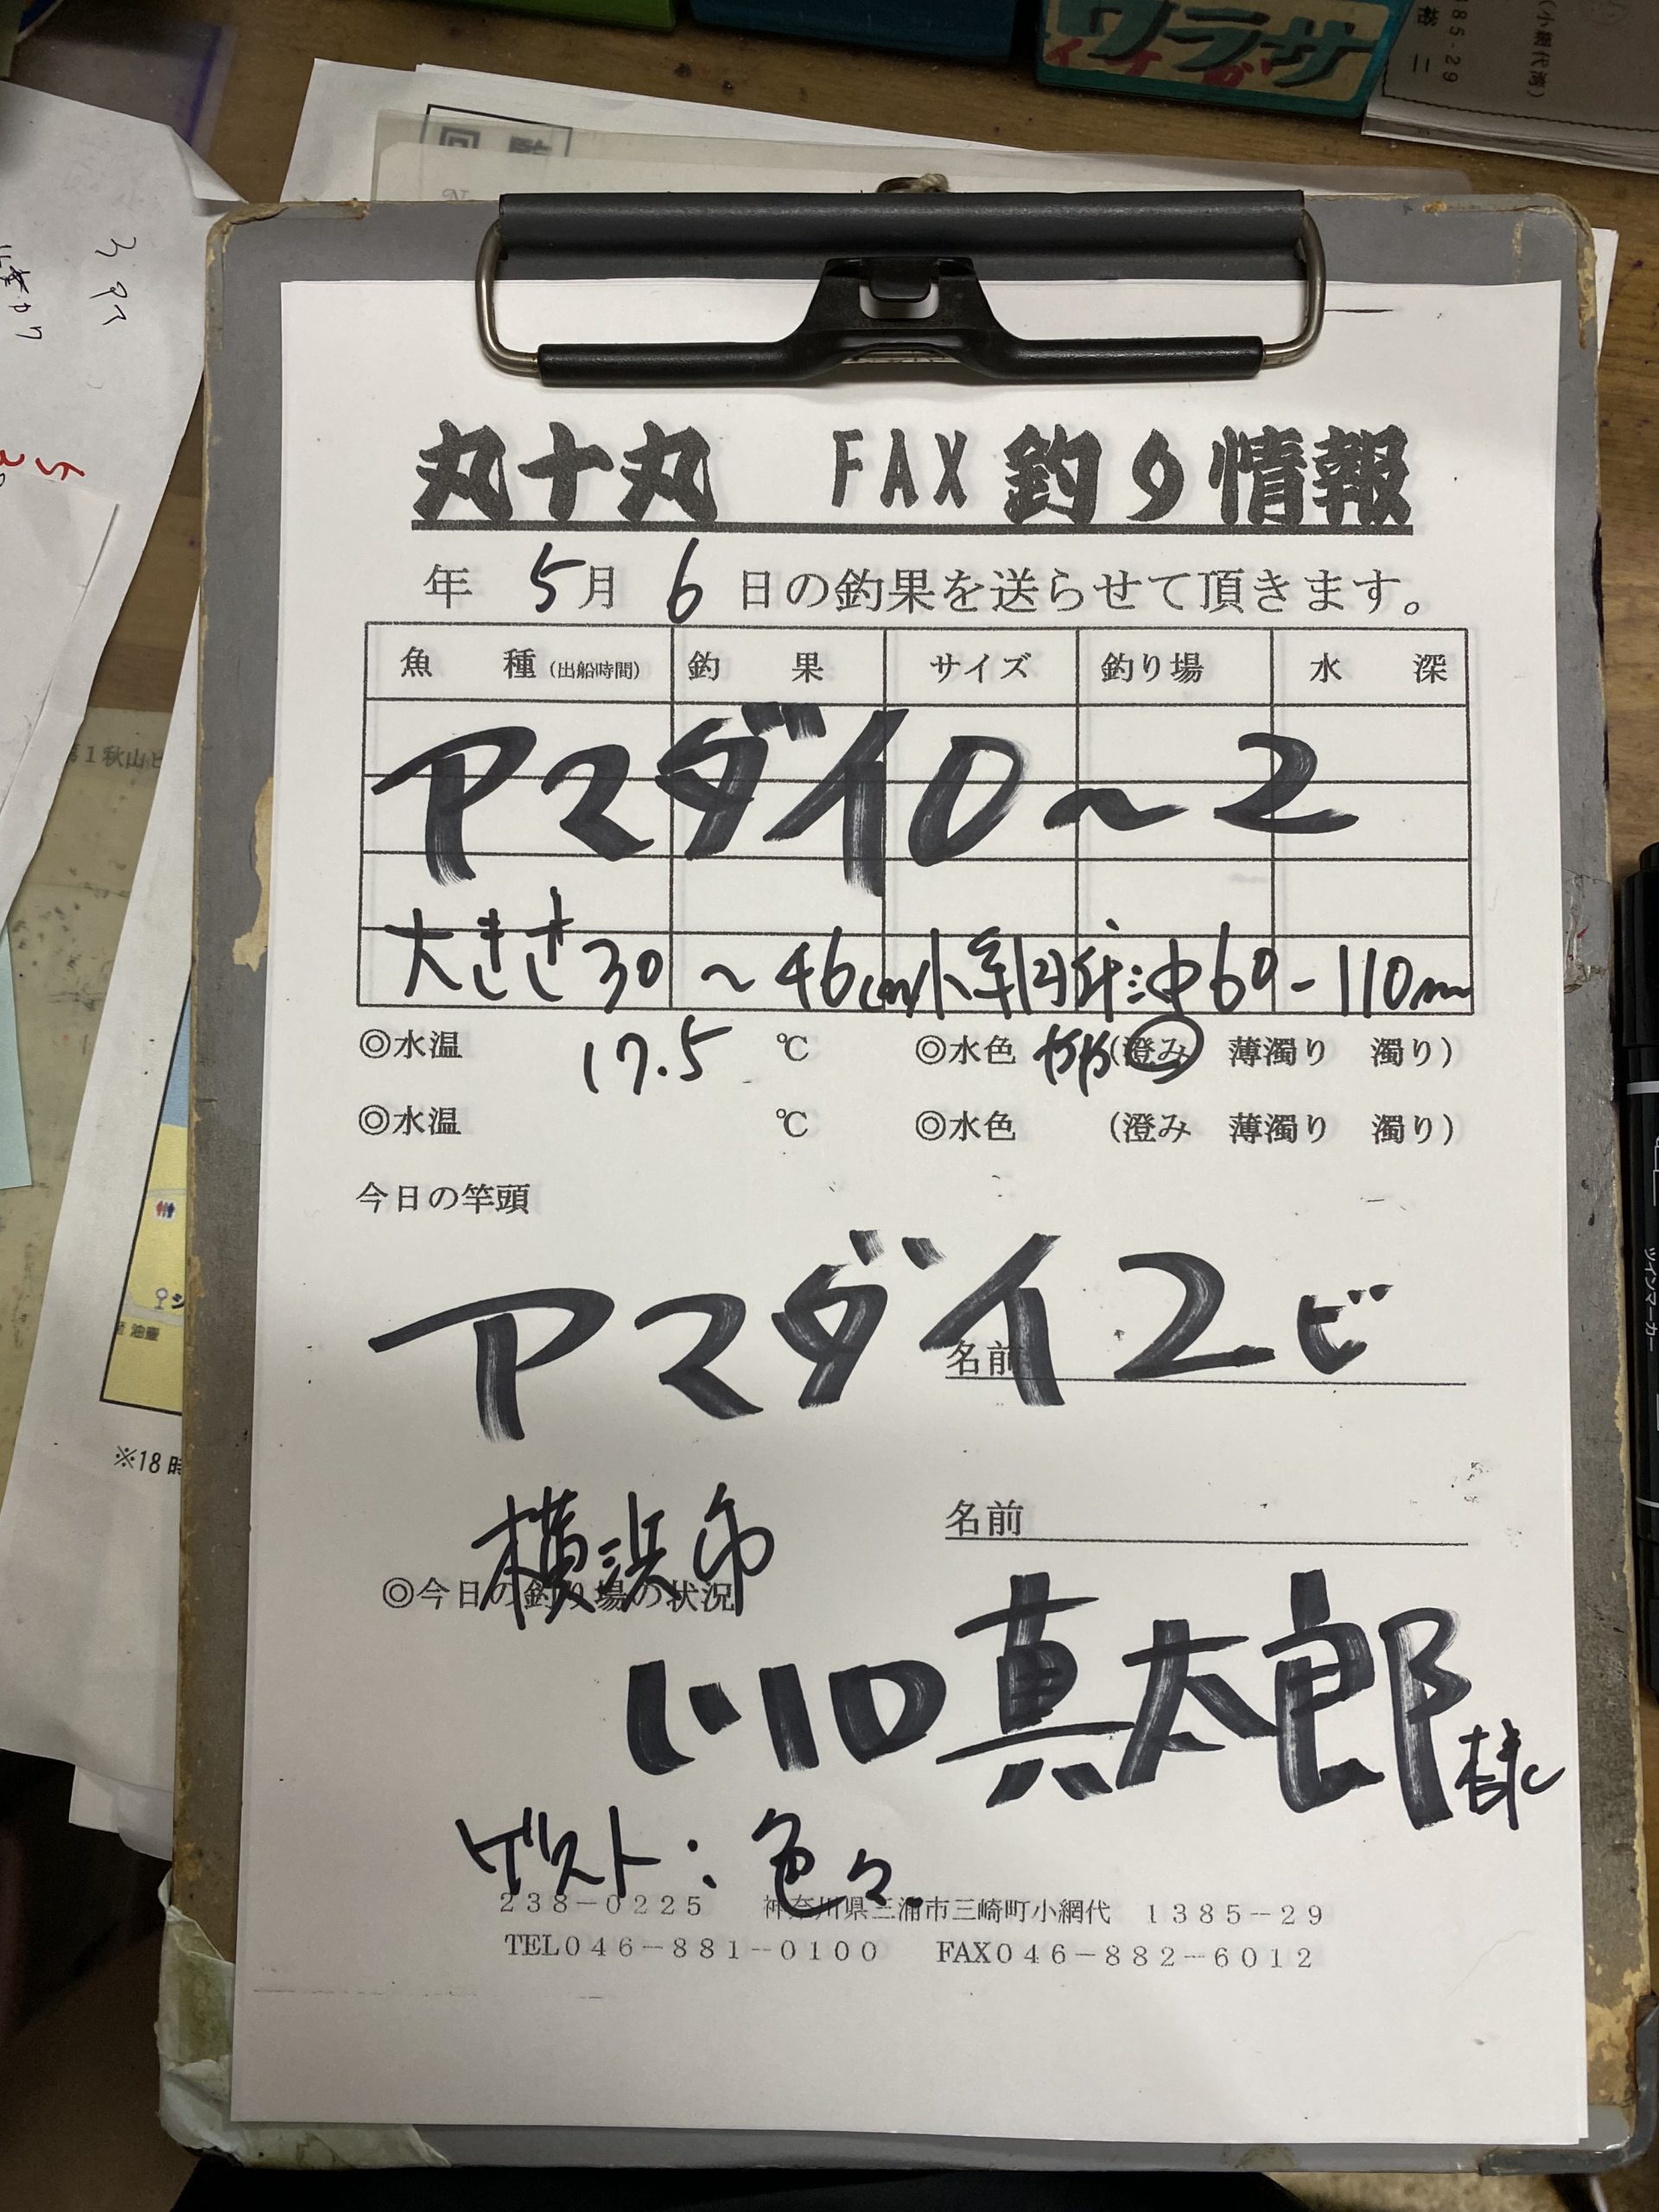 ワラサ
イナダ
(小網代湾)
85-29
裕二
回覧
丸十丸 FAX釣り情報
年 5月 6 日の釣果を送らせて頂きます。
魚種(出船時間) 釣果 サイズ 釣り場 水深
アマダイ 0〜2
大きさ 30 〜 46cm 沖 60-110m
◎水温 17.5 ℃ ◎水色 やや (澄み 薄濁り 濁り)
◎水温 ℃ ◎水色 (澄み 薄濁り 濁り)
今日の竿頭
アマダイ 2ピ
名前
横浜市
名前
◎今日の釣り場の状況
川口真太郎様
ゲスト:色々
238-0225 神奈川県三浦市三崎町小網代 1385-29
TEL046-881-0100 FAX046-882-6012
第1秋山ビ
油壷
※18時
ツインマーカー